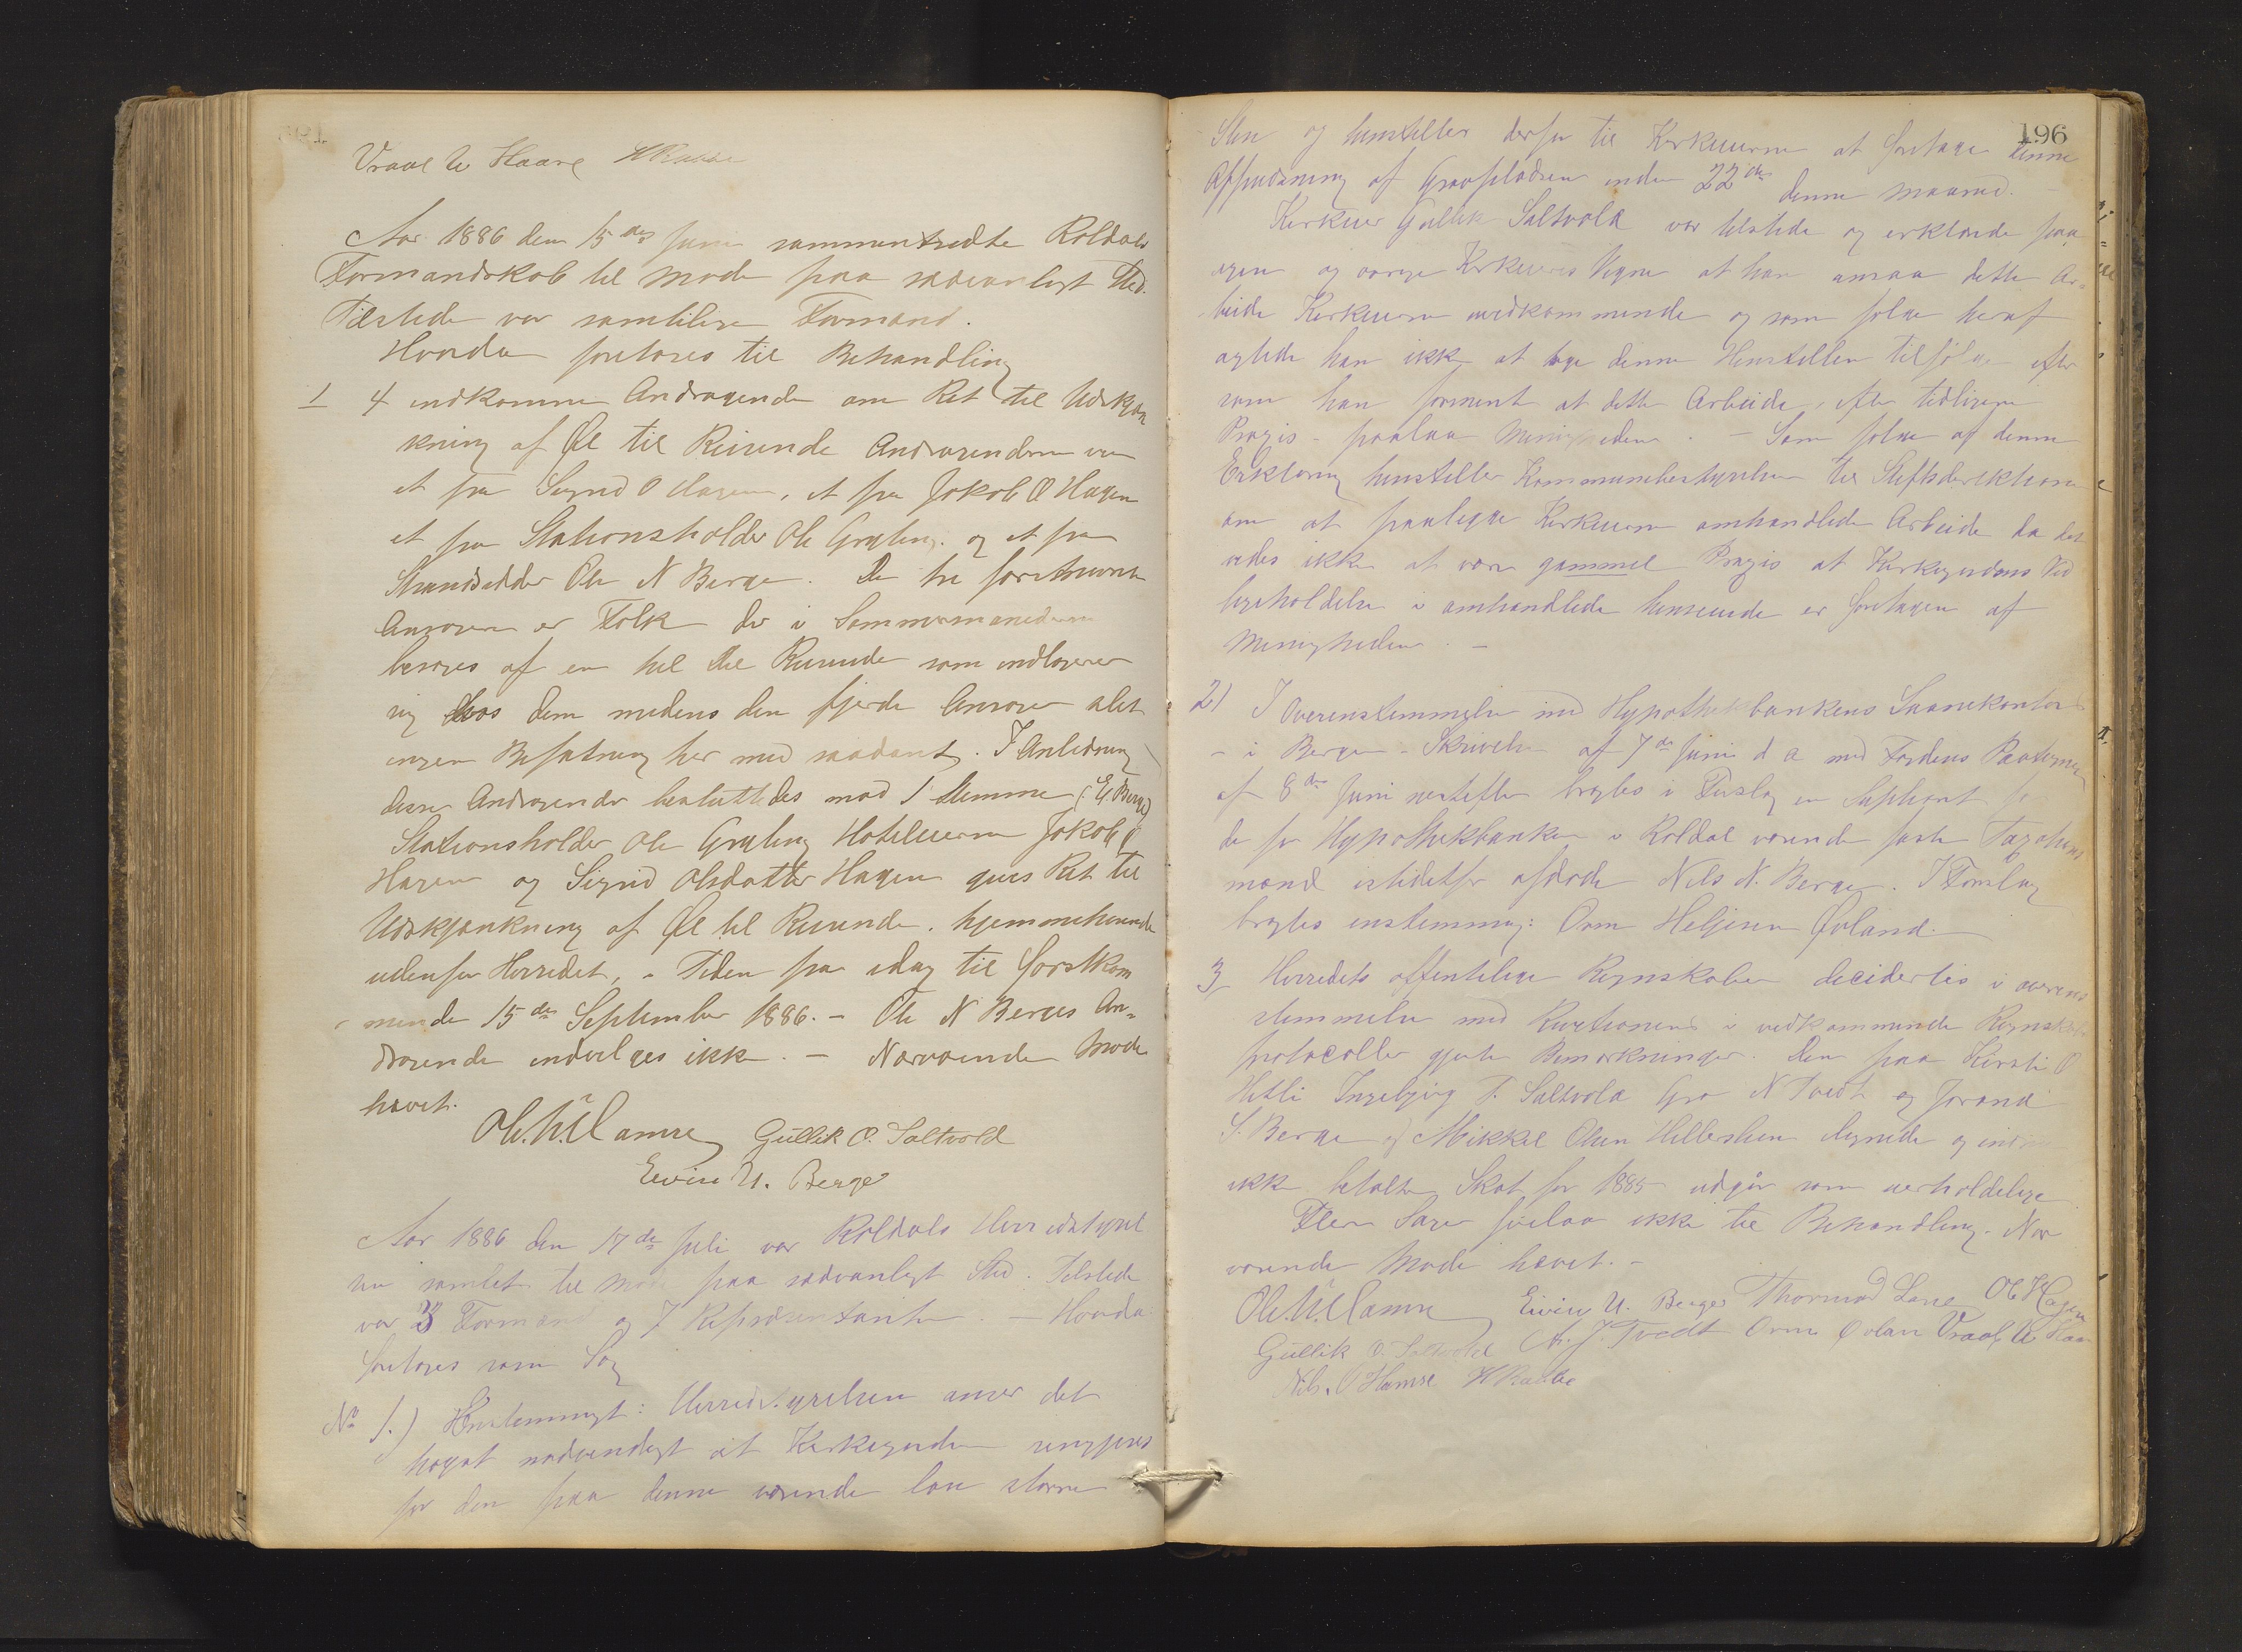 Vraal A Haare HRabbe
Aar 1886 den 15des Juni sammentraadte Röldals
Formandskab til Møde paa sædvanligt Sted.
Tilstede var samtlige Formænd.
Hvorda foretoges til Behandling
1 4 indkomne Andragende om Ret til Udskjæn
kning af Øl til Reisende Andragenderne var
et fra Sigrid O Hagen, et fra Jakob O Hagen
et fra Stationsholder Ole Gryting og et fra
Strandsidder Ole N Berge. De tre førstnævnte
Ansøgere er Folk der i Sommermaanederne
besøges af en hel Del Reisende som indlogerer
sig hos dem medens den fjerde Ansøger slet
ingen Befatning har med saadant. I Anledning
disse Andragender besluttedes mod 1 Stemme (E. Berge)
Stationsholder Ole Gryting Hoteleierne Jakob O
Hagen og Sigrid Olsdatter Hagen gives Ret til
Udskjænkning af Øl til Reisende hjemmehørende
udenfor Herredet, Tiden fra idag til førstkom
mende 15de September 1886. - Ole N Berges An=
dragende indvilges ikke. - Nærværende Møde
hævet.
Ole. N. Hamre Gullik O. Saltvold
Eivin U. Berge
Aar 1886 den 17de Juli var Röldals Herredsstyrel
se samlet til Møde paa sædvanligt Sted. Tilstede
var 3 Formænd og 7 Repræsentanter. - Hvorda
foretoges som Sag
No 1.) Enstemmigt: Herredsstyrelsen anser det
høyst nødvendigt at Kirkegaarden rengjøres
for den paa denne værende lau større
196
Sten og henstiller derfor til Kirkeeierne at foretage denne
Afpudsning af Gravpladsen inden 22de denne Maaned.
Kirkeeier Gullik Saltvold var tilstede og erklærede paa
egen og øvrige Kirkeeieres Vegne at han ansaa dette Ar=
beide Kirkeeierne uvedkommende og som følge heraf
agtede han ikke at tage denne Henstillen tilfølge efter
som han forment at dette Arbeide, efter tidligere
Praxis - paalaa Menigheden. - Som følge af denne
Erklæring henstiller Kommunebestyrelsen til Stiftsdirektionen
om at paalegge Kirkeeierne omhandlede Arbeide da det
vides ikke at være gammel Praxis at Kirkegaardens Ved
ligeholdelse i omhandlede henseende er foretagen af
Menigheden. -
2) I Overenstemmelse med Hypothekbankens Laanekontor
i Bergen - Skrivelse af 7de Juni d a med Fogdens Paategning
af 8de Juni næstefter bragtes i Forslag en Suppleant for
de for Hypothekbanken i Röldal værende faste Taxations
mænd istedetfor afdøde Nils N. Berge. I Forslag
bragtes enstemmig: Orm Heljesen Øvland.
3 Herredets offentlige Regnskaber decidertes i overens
stemmelse med Revisionens i vedkommende Regnskabs
protocoller gjorte Bemærkninger. Den paa Kirsti O
Hetli Ingebjørg T. Saltvold Gro N Tvedt og Jorand
S. Berge og Mikkel Olsen Hellersteen lignede og
ikke betalte Skat for 1885 udgår som uerholdelige
Flere Sager forelaa ikke til Behandling. Nær
værende Møde hævet. -
Ole. N. Hamre Eivin U. Berge Thormod Lone Ol Hagen
Gullik O. Saltvold A. J. Tvedt Orm Øvlan Vraal A Haar
Nils. O Hamre HRabbe